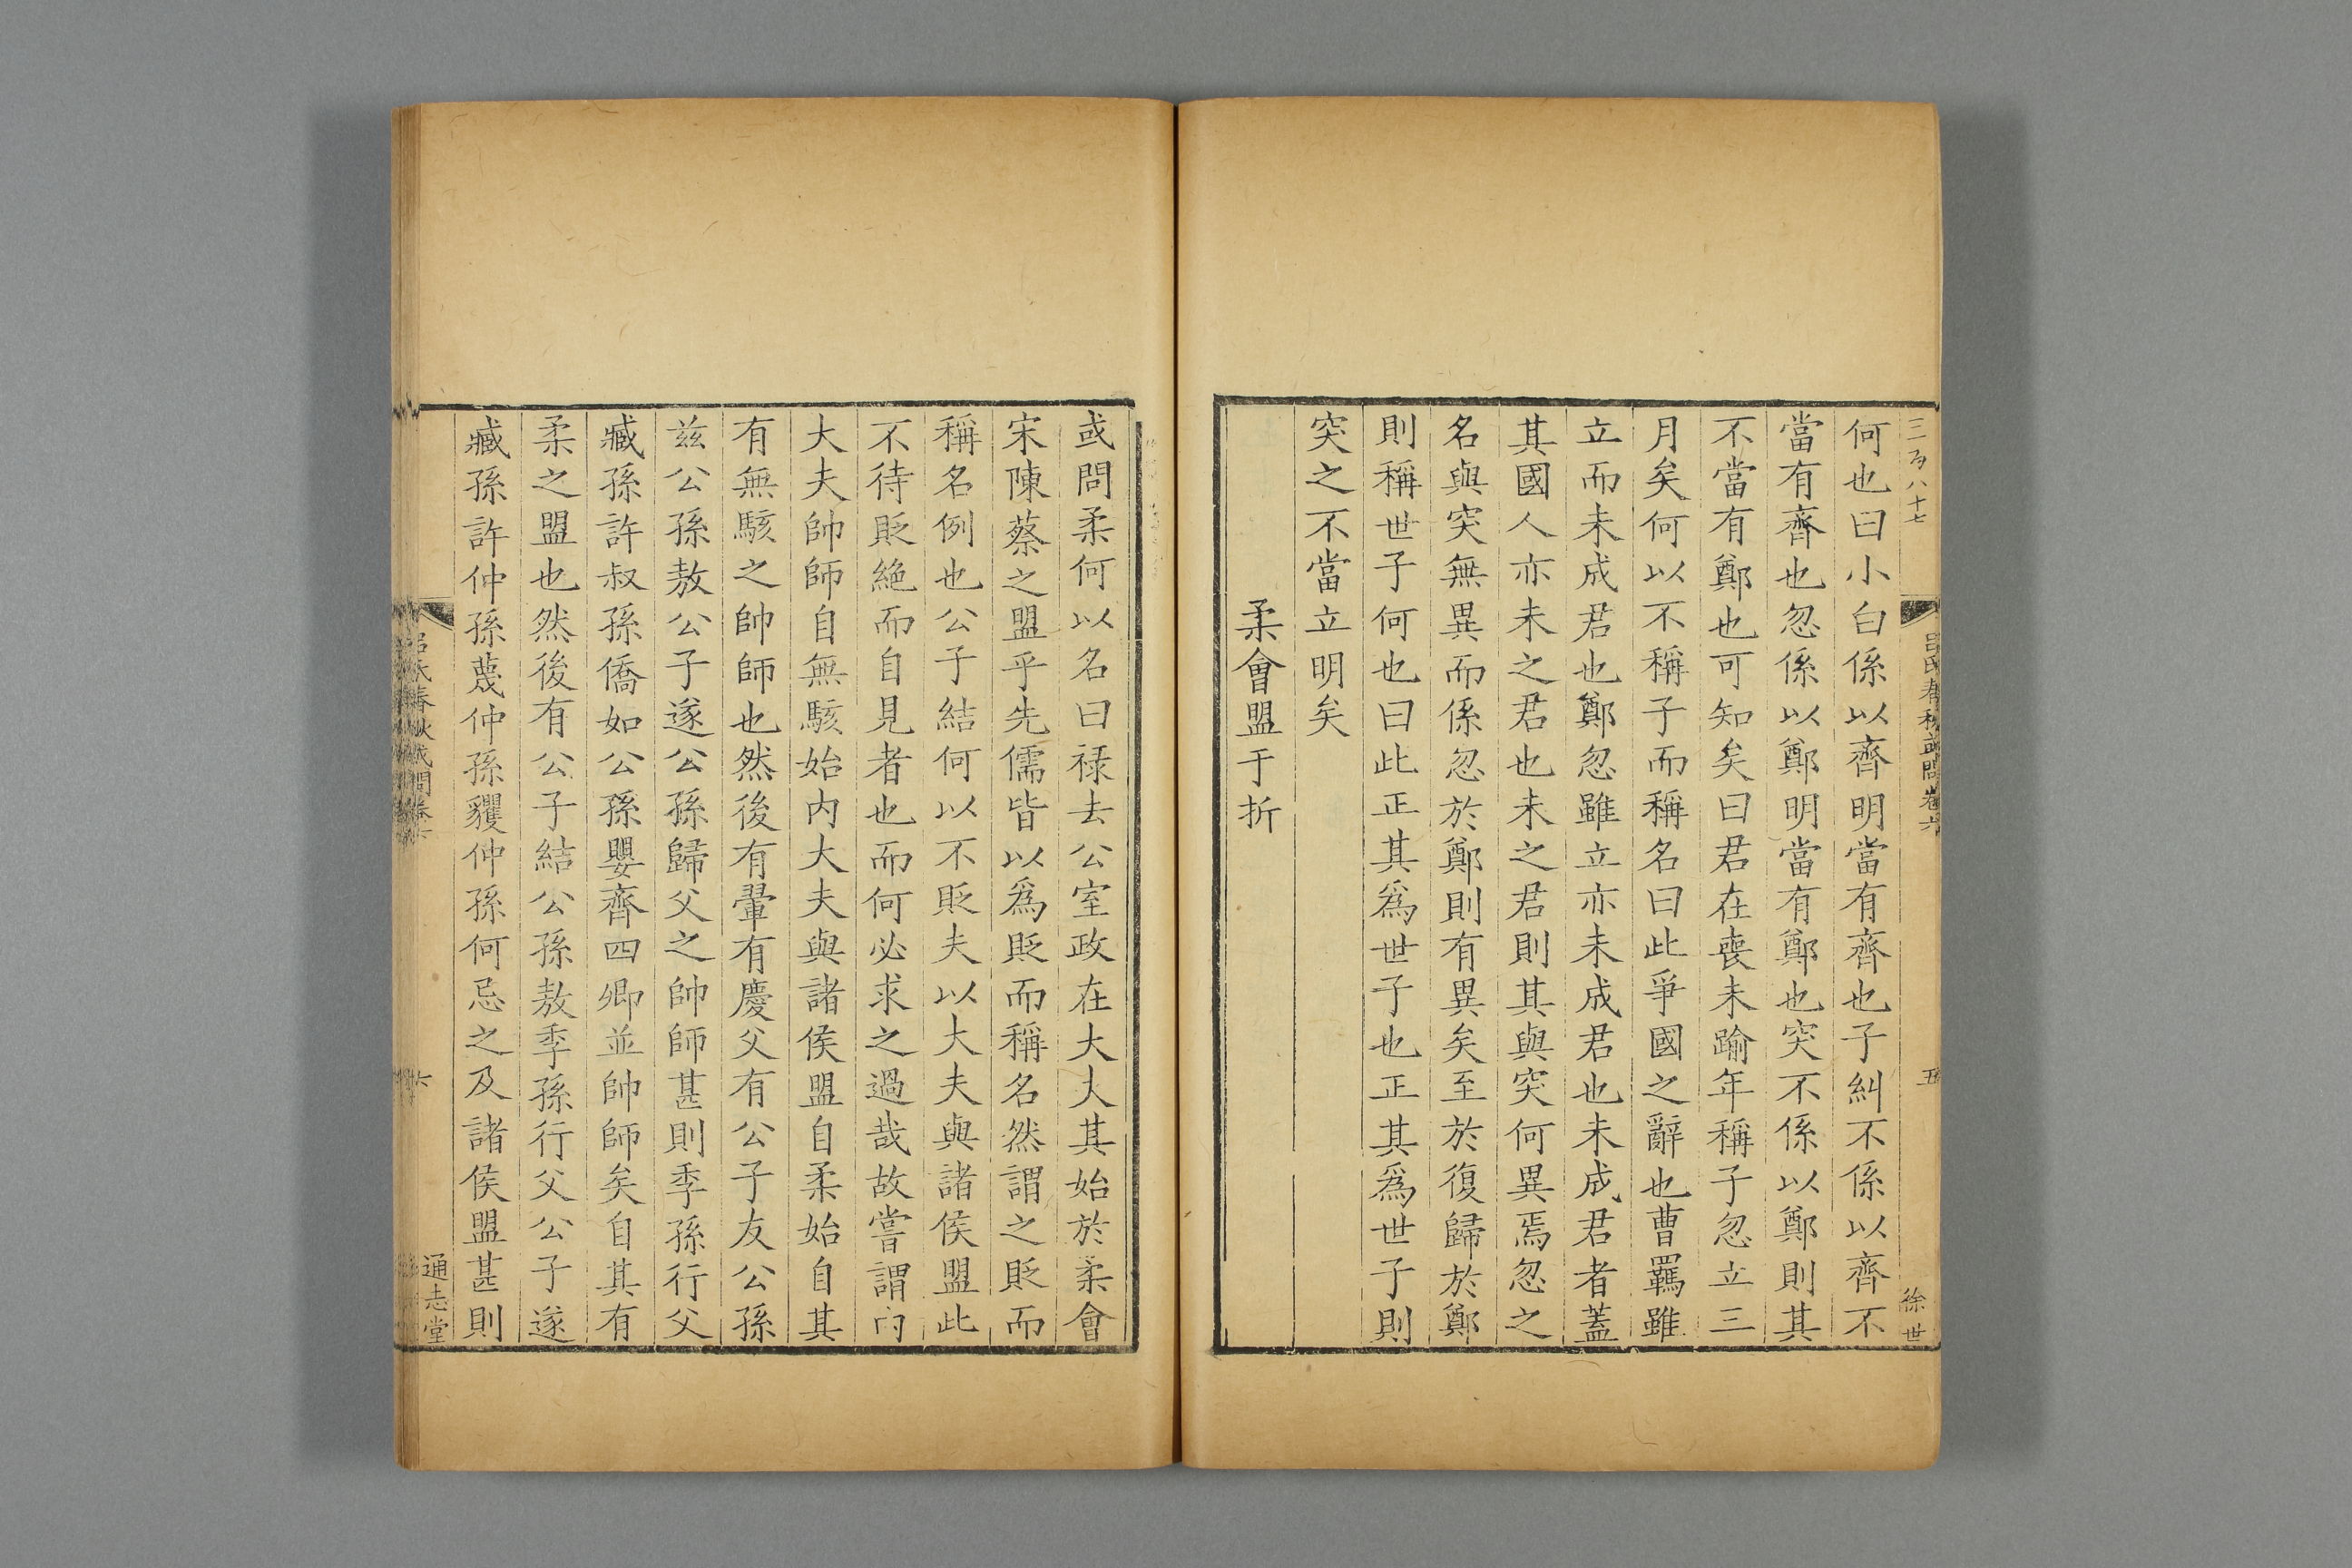 三百八十七
呂氏春秋或問卷六
五
徐世
何也曰小白係以齊明當有齊也子糾不係以齊不
當有齊也忽係以鄭明當有鄭也突不係以鄭則其
不當有鄭也可知矣曰君在喪未踰年稱子忽立三
月矣何以不稱子而稱名曰此爭國之辭也曹羈雖
立而未成君也鄭忽雖立亦未成君也未成君者蓋
其國人亦未之君也未之君則其與突何異焉忽之
名與突無異而係忽於鄭則有異矣至於復歸於鄭
則稱世子何也曰此正其爲世子也正其爲世子則
突之不當立明矣
柔會盟于折
或問柔何以名曰祿去公室政在大夫其始於柔會
宋陳蔡之盟乎先儒皆以爲貶而稱名然謂之貶而
稱名例也公子結何以不貶夫以大夫與諸侯盟此
不待貶絶而自見者也而何必求之過哉故嘗謂内
大夫帥師自無駭始内大夫與諸侯盟自柔始自其
有無駭之帥師也然後有翬有慶父有公子友公孫
茲公孫敖公子遂公孫歸父之帥師甚則季孫行父
臧孫許叔孫僑如公孫嬰齊四卿並帥師矣自其有
柔之盟也然後有公子結公孫敖季孫行父公子遂
臧孫許仲孫蔑仲孫貜仲孫何忌之及諸侯盟甚則
呂氏春秋或問卷六
六
通志堂